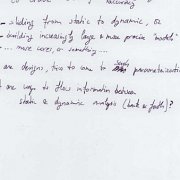 - sliding from static to dynamic, or
- building increasingly large & more precise "models"
- ... more cores, or something ...
are designs, tries to come to parametrization
are ways to flow information between
static & dynamic analysis (back & forth)?